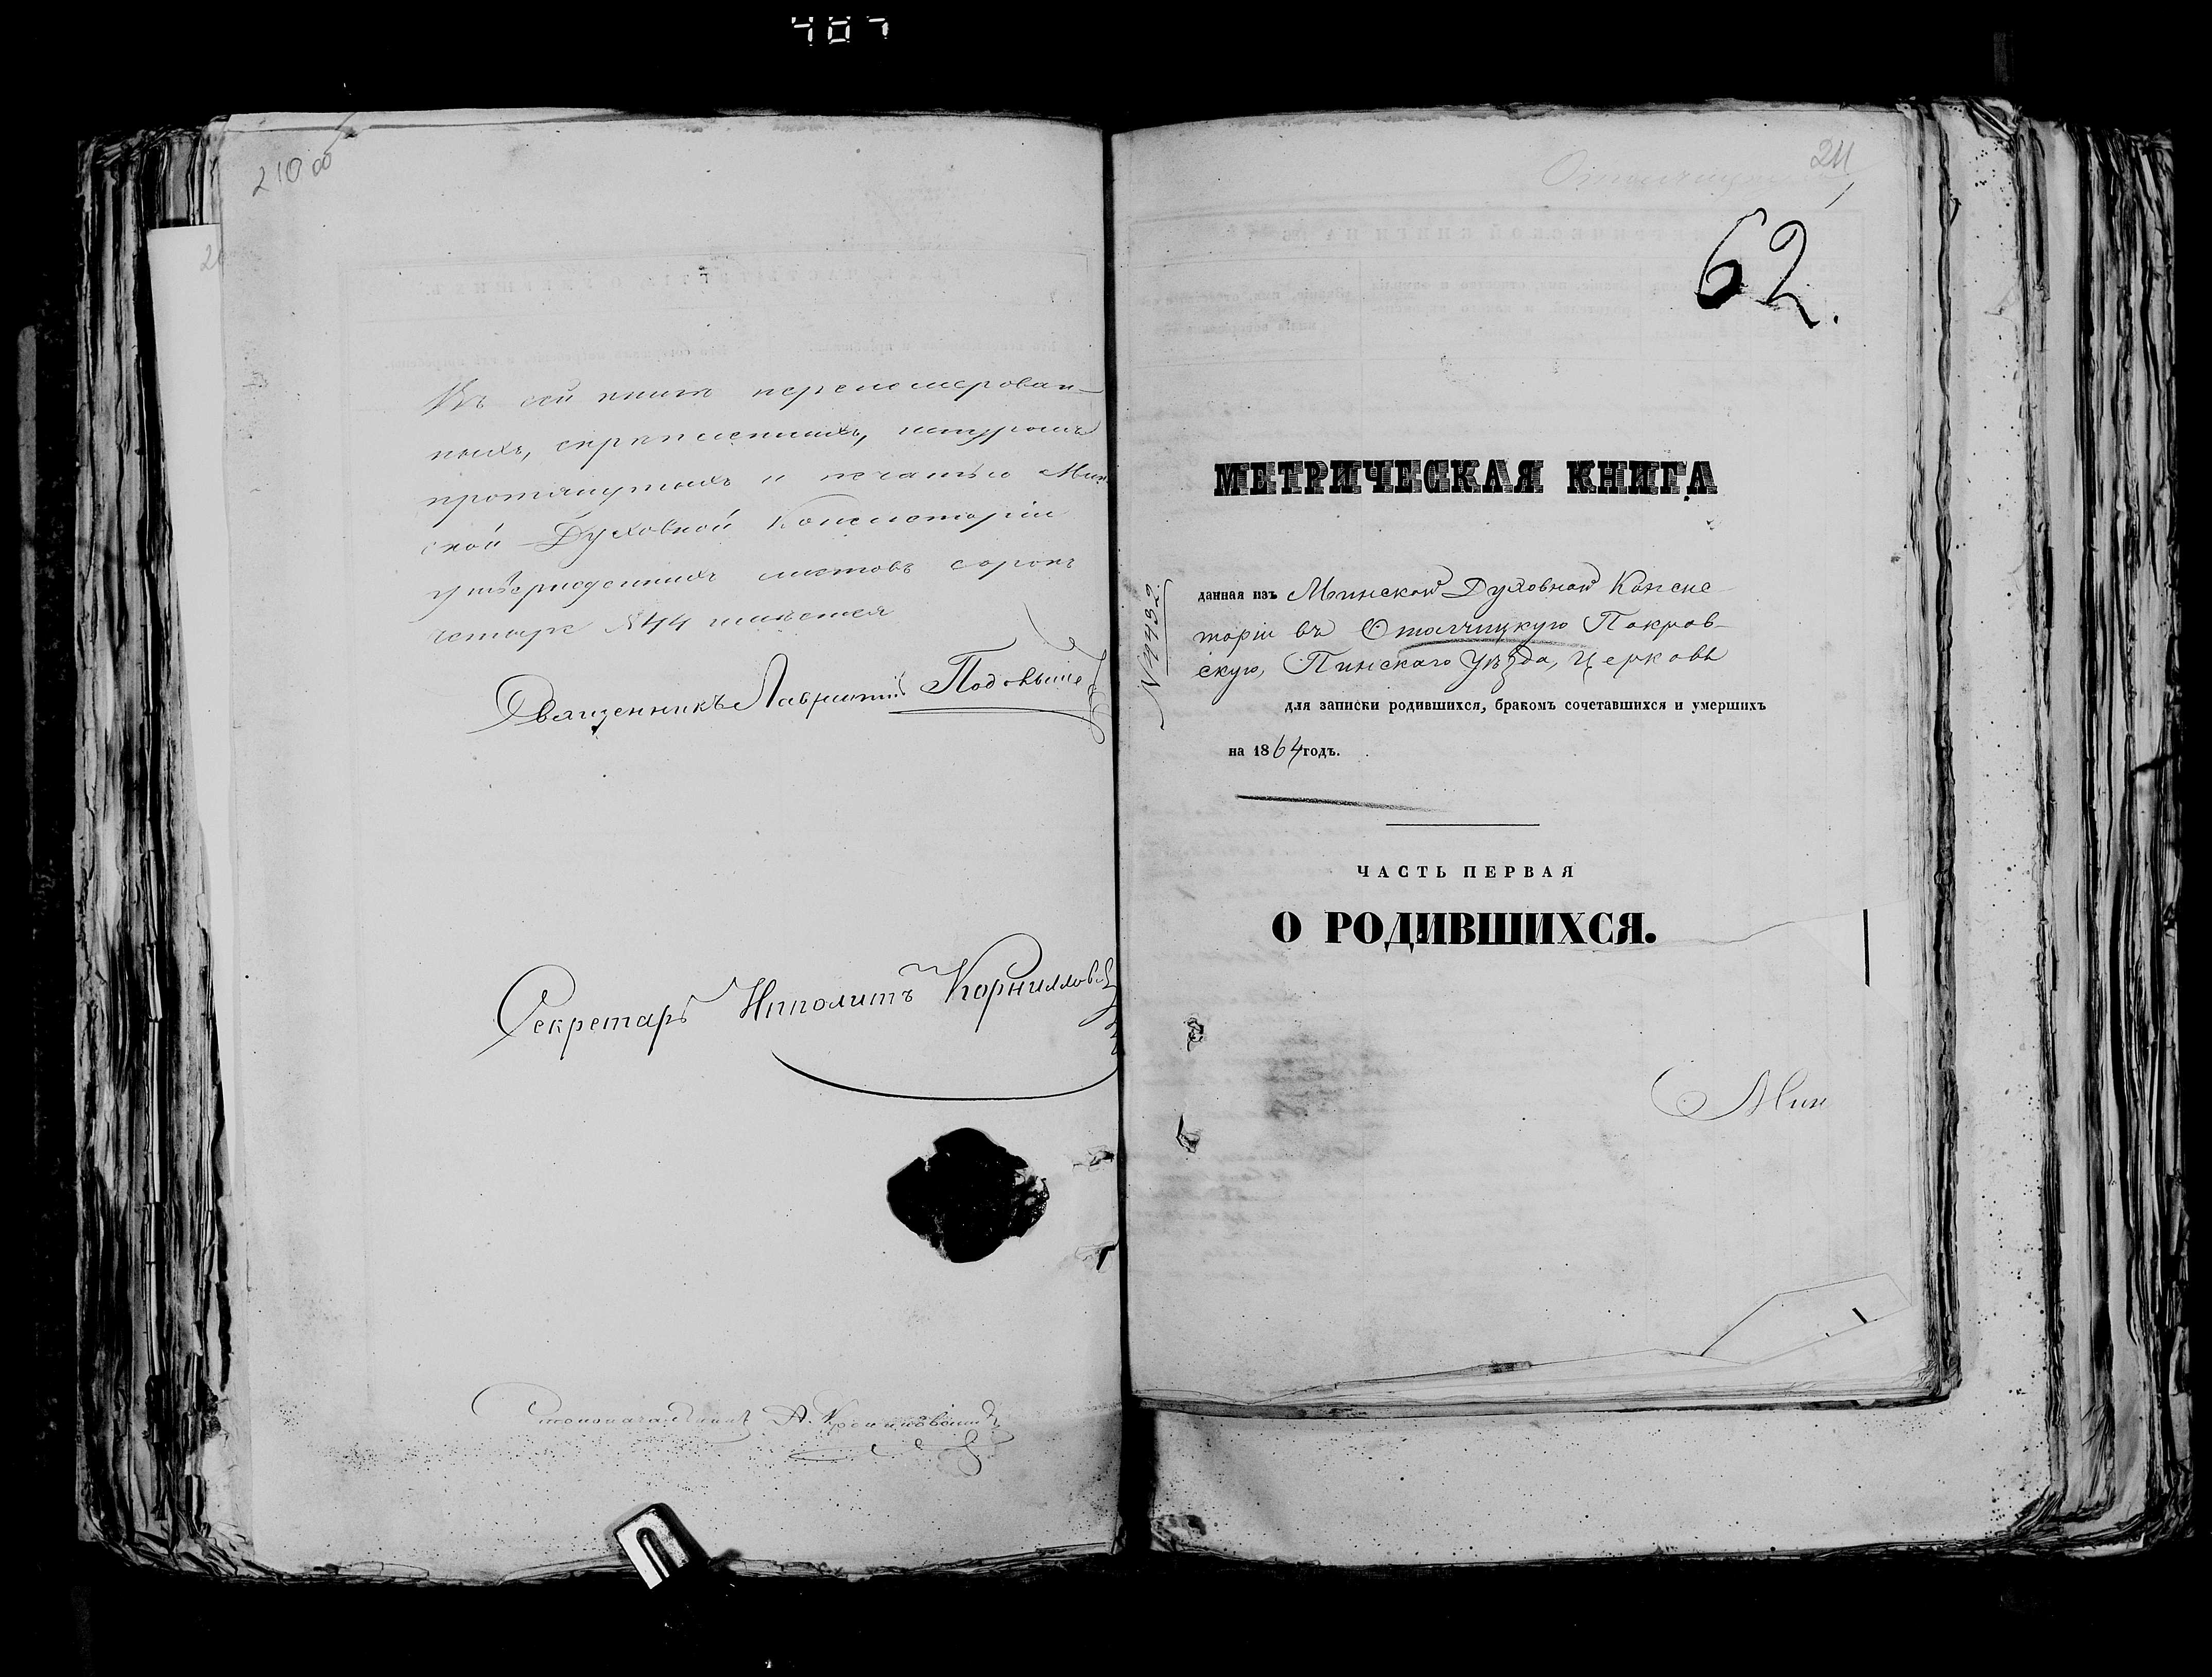 407
210 об
Въ сей книгѣ перенумерован-
ныхъ, скрѣпленныхъ, шнуромъ
протянутыхъ и печатью Мин
ской Духовной Консисторіи
утвержденныхъ листовъ сорокъ
четыре №44 имѣется
Священникъ Лаврентій
Секретарь Ипполитъ
Столоначальникъ А.
211
62.
МЕТРИЧЕСКАЯ КНИГА
данная изъ Минской Духовной Консис
торіи въ Отолчицкую Покров-
скую, Пинскаго Уѣзда, Церковь
для записки родившихся, бракомъ сочетавшихся и умершихъ
на 1864 годъ.
ЧАСТЬ ПЕРВАЯ
О РОДИВШИХСЯ.
Мин